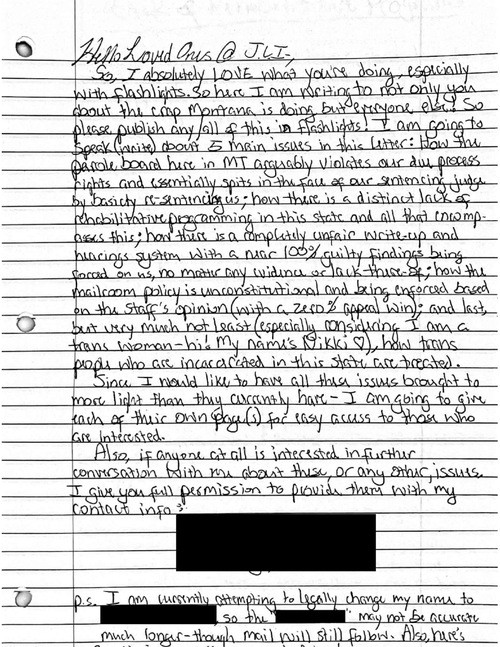 Hello Loved Ones @ JLI-,
So, I absolutely LOVE what you're doing, especially
with flashlights. So here I am writing to not only you
about the crap Montana is doing but everyone else! So
please publish any/all of this in flashlights! I am going to
speak (write) about 5 main issues in this letter: How the
parole board here in MT arguably violates our due process
rights and essentially spits in the face of our sentencing judge
by basicly re-sentencing us; how there is a distinct lack of
rehabilitative programming in this state and all that encomp-
asses this; how there is a completely unfair write-up and
hearings system with a near 100% guilty findings being
forced on us, no matter any evidence or lack-there-of; how the
mailroom policy is unconstitutional and being enforced based
on the staff's opinion (with a zero% appeal win); and last,
but very much not least (especially considering I am a
trans woman-hi! My name's Nikki ♡), how trans
people who are incarcerated in this state are treated.
Since I would like to have all these issues brought to
more light than they currently have - I am going to give
each of their own page(s) for easy access to those who
are interested.
Also, if anyone at all is interested in further
conversation with me about these, or any other, issues.
I give you full permission to provide them with my
contact info:
p.s. I am currently attempting to legally change my name to
, so the " " may not be accurate
much longer-though mail will still follow. Also, here's